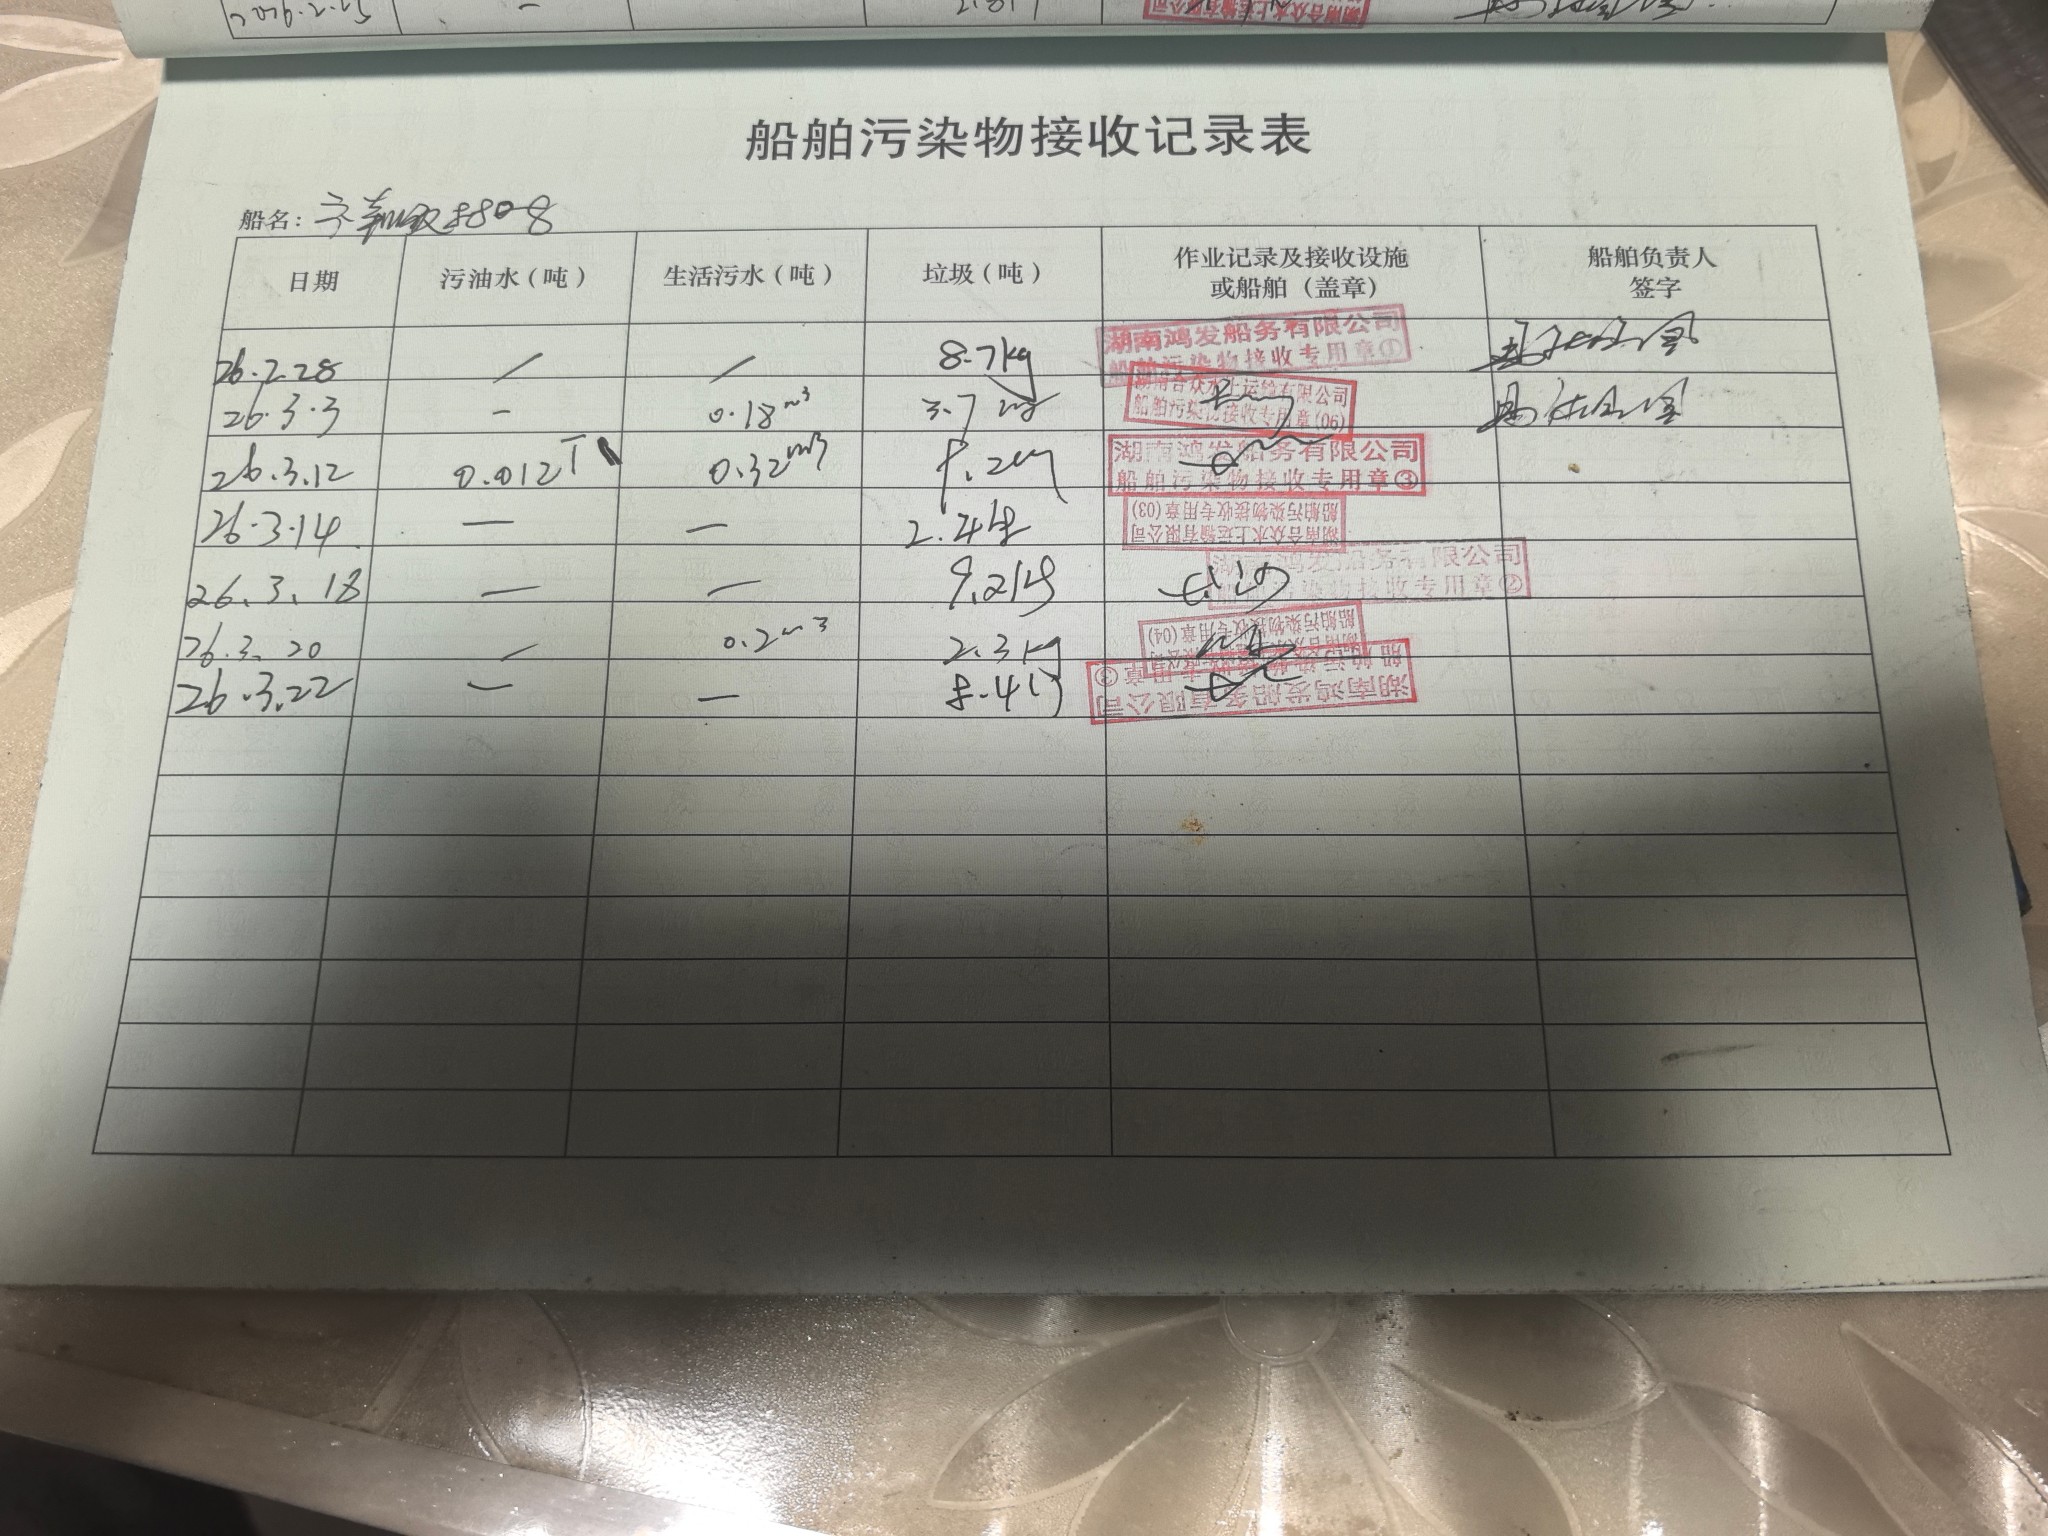 2026.2.25 -
船舶污染物接收记录表
船名: 808
日期 污油水（吨） 生活污水（吨） 垃圾（吨） 作业记录及接收设施 船舶负责人
或船舶（盖章） 签字
湖南鸿发船务有限公司
船舶污染物接收专用章①
26.2.28 / / 8.7kg
湖南合众水上运输有限公司
船舶污染物接收专用章(06)
26.3.3 - 0.18m³ 3.7kg
湖南鸿发船务有限公司
船舶污染物接收专用章③
26.3.12 0.012T 0.32m³ 8.2kg
湖南合众水上运输有限公司
船舶污染物接收专用章(03)
26.3.14 — — 2.4kg
湖南鸿发船务有限公司
船舶污染物接收专用章②
26.3.18 — — 9.2kg
湖南合众水上运输有限公司
船舶污染物接收专用章(04)
26.3.20 — 0.2m³ 2.3kg
湖南鸿发船务有限公司
船舶污染物接收专用章③
26.3.22 — — 8.4kg